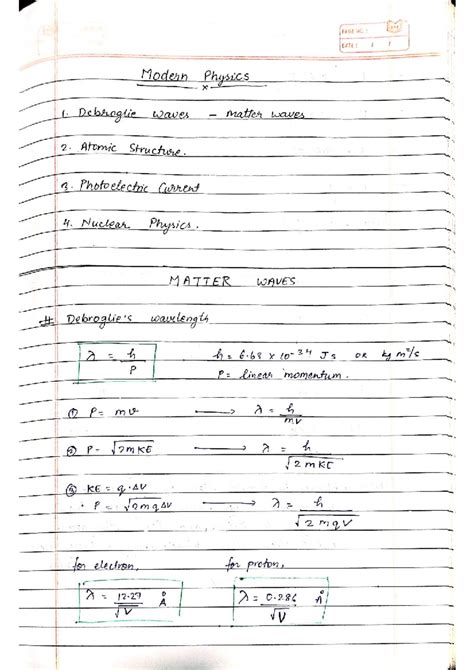 PAGE NO.:
DATE: / /
Modern Physics
x
1. Debroglie waves – matter waves
2. Atomic Structure.
3. Photoelectric Current
4. Nuclear Physics.
MATTER WAVES
# Debroglie's wavelength
λ = h/P h = 6.63 × 10⁻³⁴ Js OR kg m²/s
P = linear momentum.
① P = mv ⟶ λ = h/mv
② P = √2mKE ⟶ λ = h/√2mKE
③ KE = q·ΔV
• P = √2mqΔV ⟶ λ = h/√2mqV
for electron, for proton,
λ = 12.27/√V Å λ = 0.286/√V Å